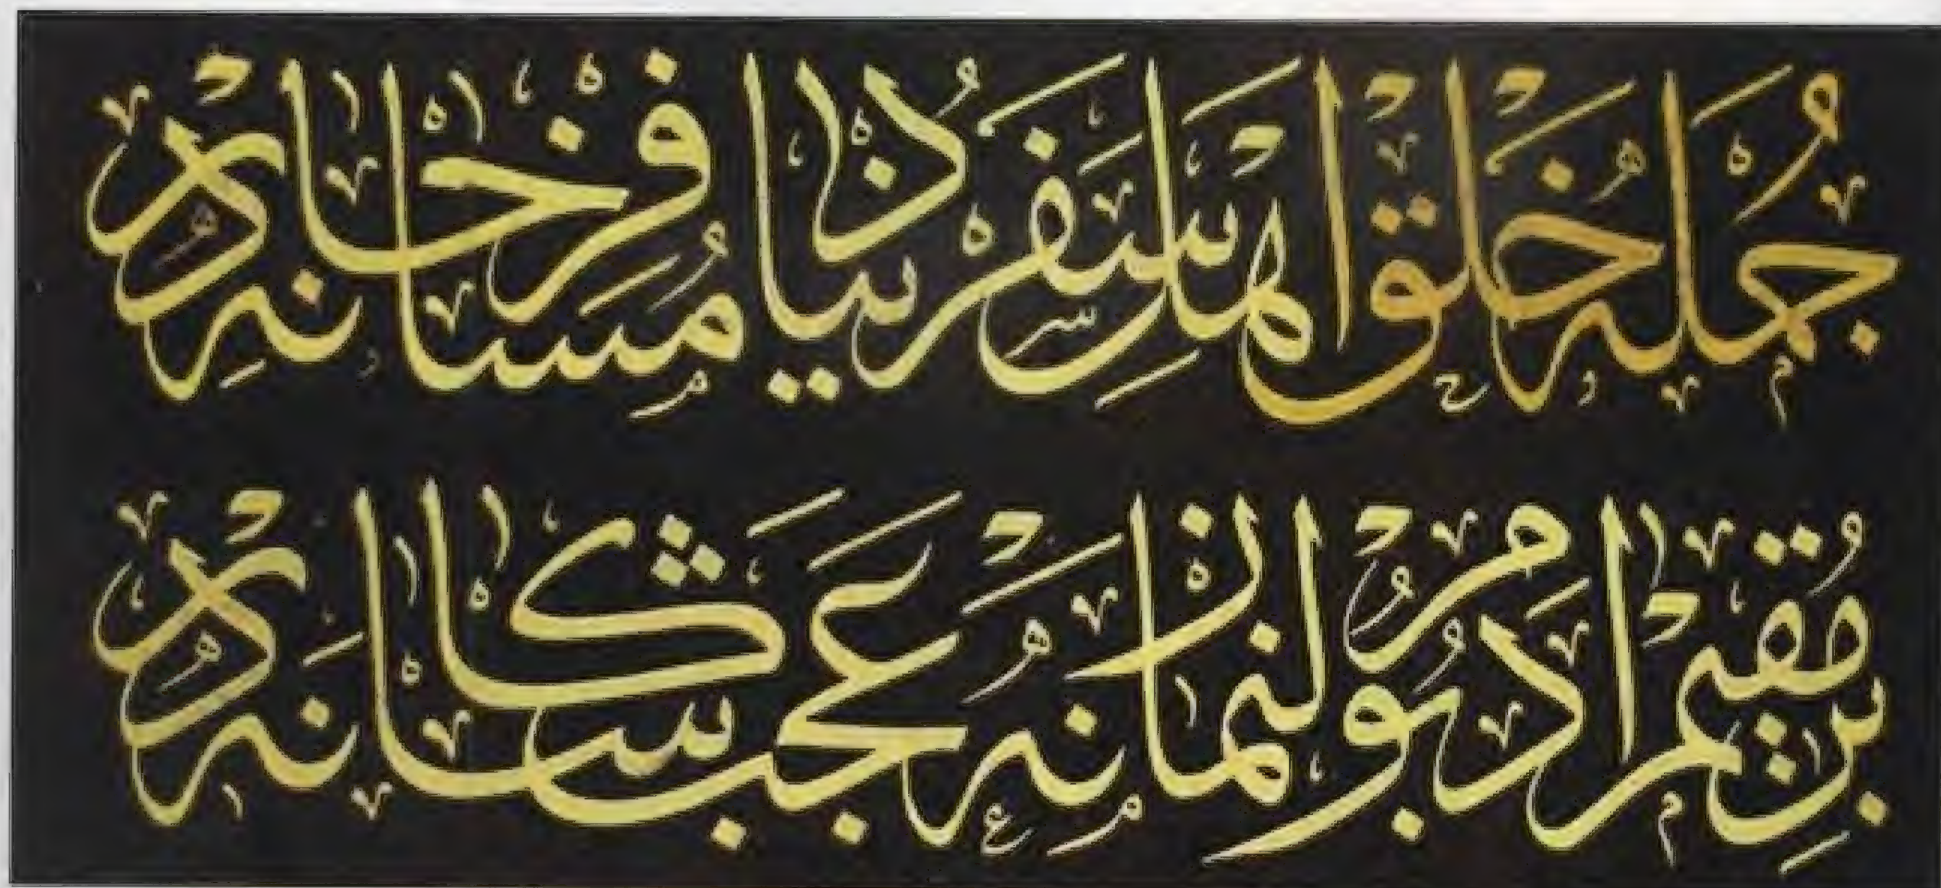 جُمله خَلقْ اهْلِ سَفَر دُنْيا مُسَافِرْخانَه دِرْ
بِرْ مُقيمْ ادَمْ بُولُنْمازْ نَه عَجَبْ كاشانَه دِرْ